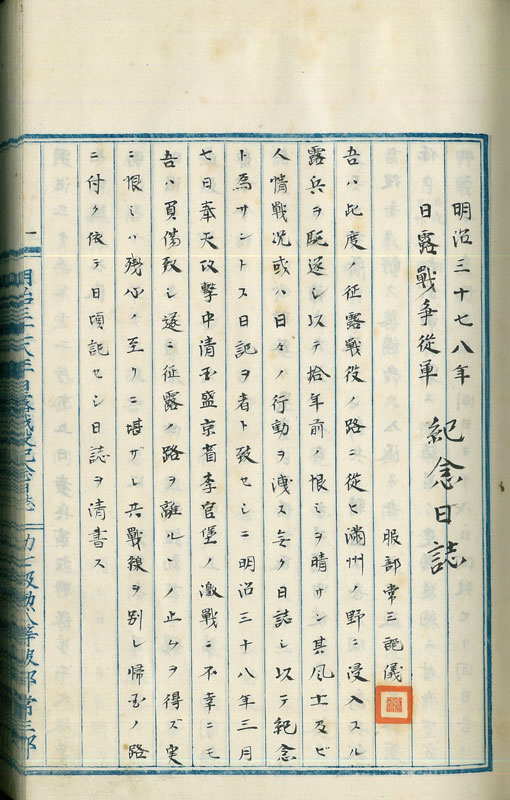 明治三十七八年
日露戰争從軍 紀念日誌
服部常三郎儀
吾ハ此度ノ征露戰役ノ路ニ從ヒ滿州ノ野ニ浸入スル
露兵ヲ駈逐シ以テ拾年前ノ恨ミヲ晴サン其風土及ビ
人情戰況或ハ日々ノ行動ヲ洩ス無ク日誌シ以テ紀念
ト為サントス日記ヲ者ト致セシニ明治三十八年三月
七日奉天攻擊中清国盛京省李官堡ノ激戰ニ不幸ニモ
吾ハ負傷致シ遂ニ征露ノ路ヲ離ルノ止ムヲ得ズ実
ニ恨シハ残心ノ至リニ堪ザレ共戰線ヲ別レ帰国ノ路
ニ付ク依テ日頃記セシ日誌ヲ清書ス
一
明治三十七八年日露戰役紀念日誌
功七級勲八等服部常三郎